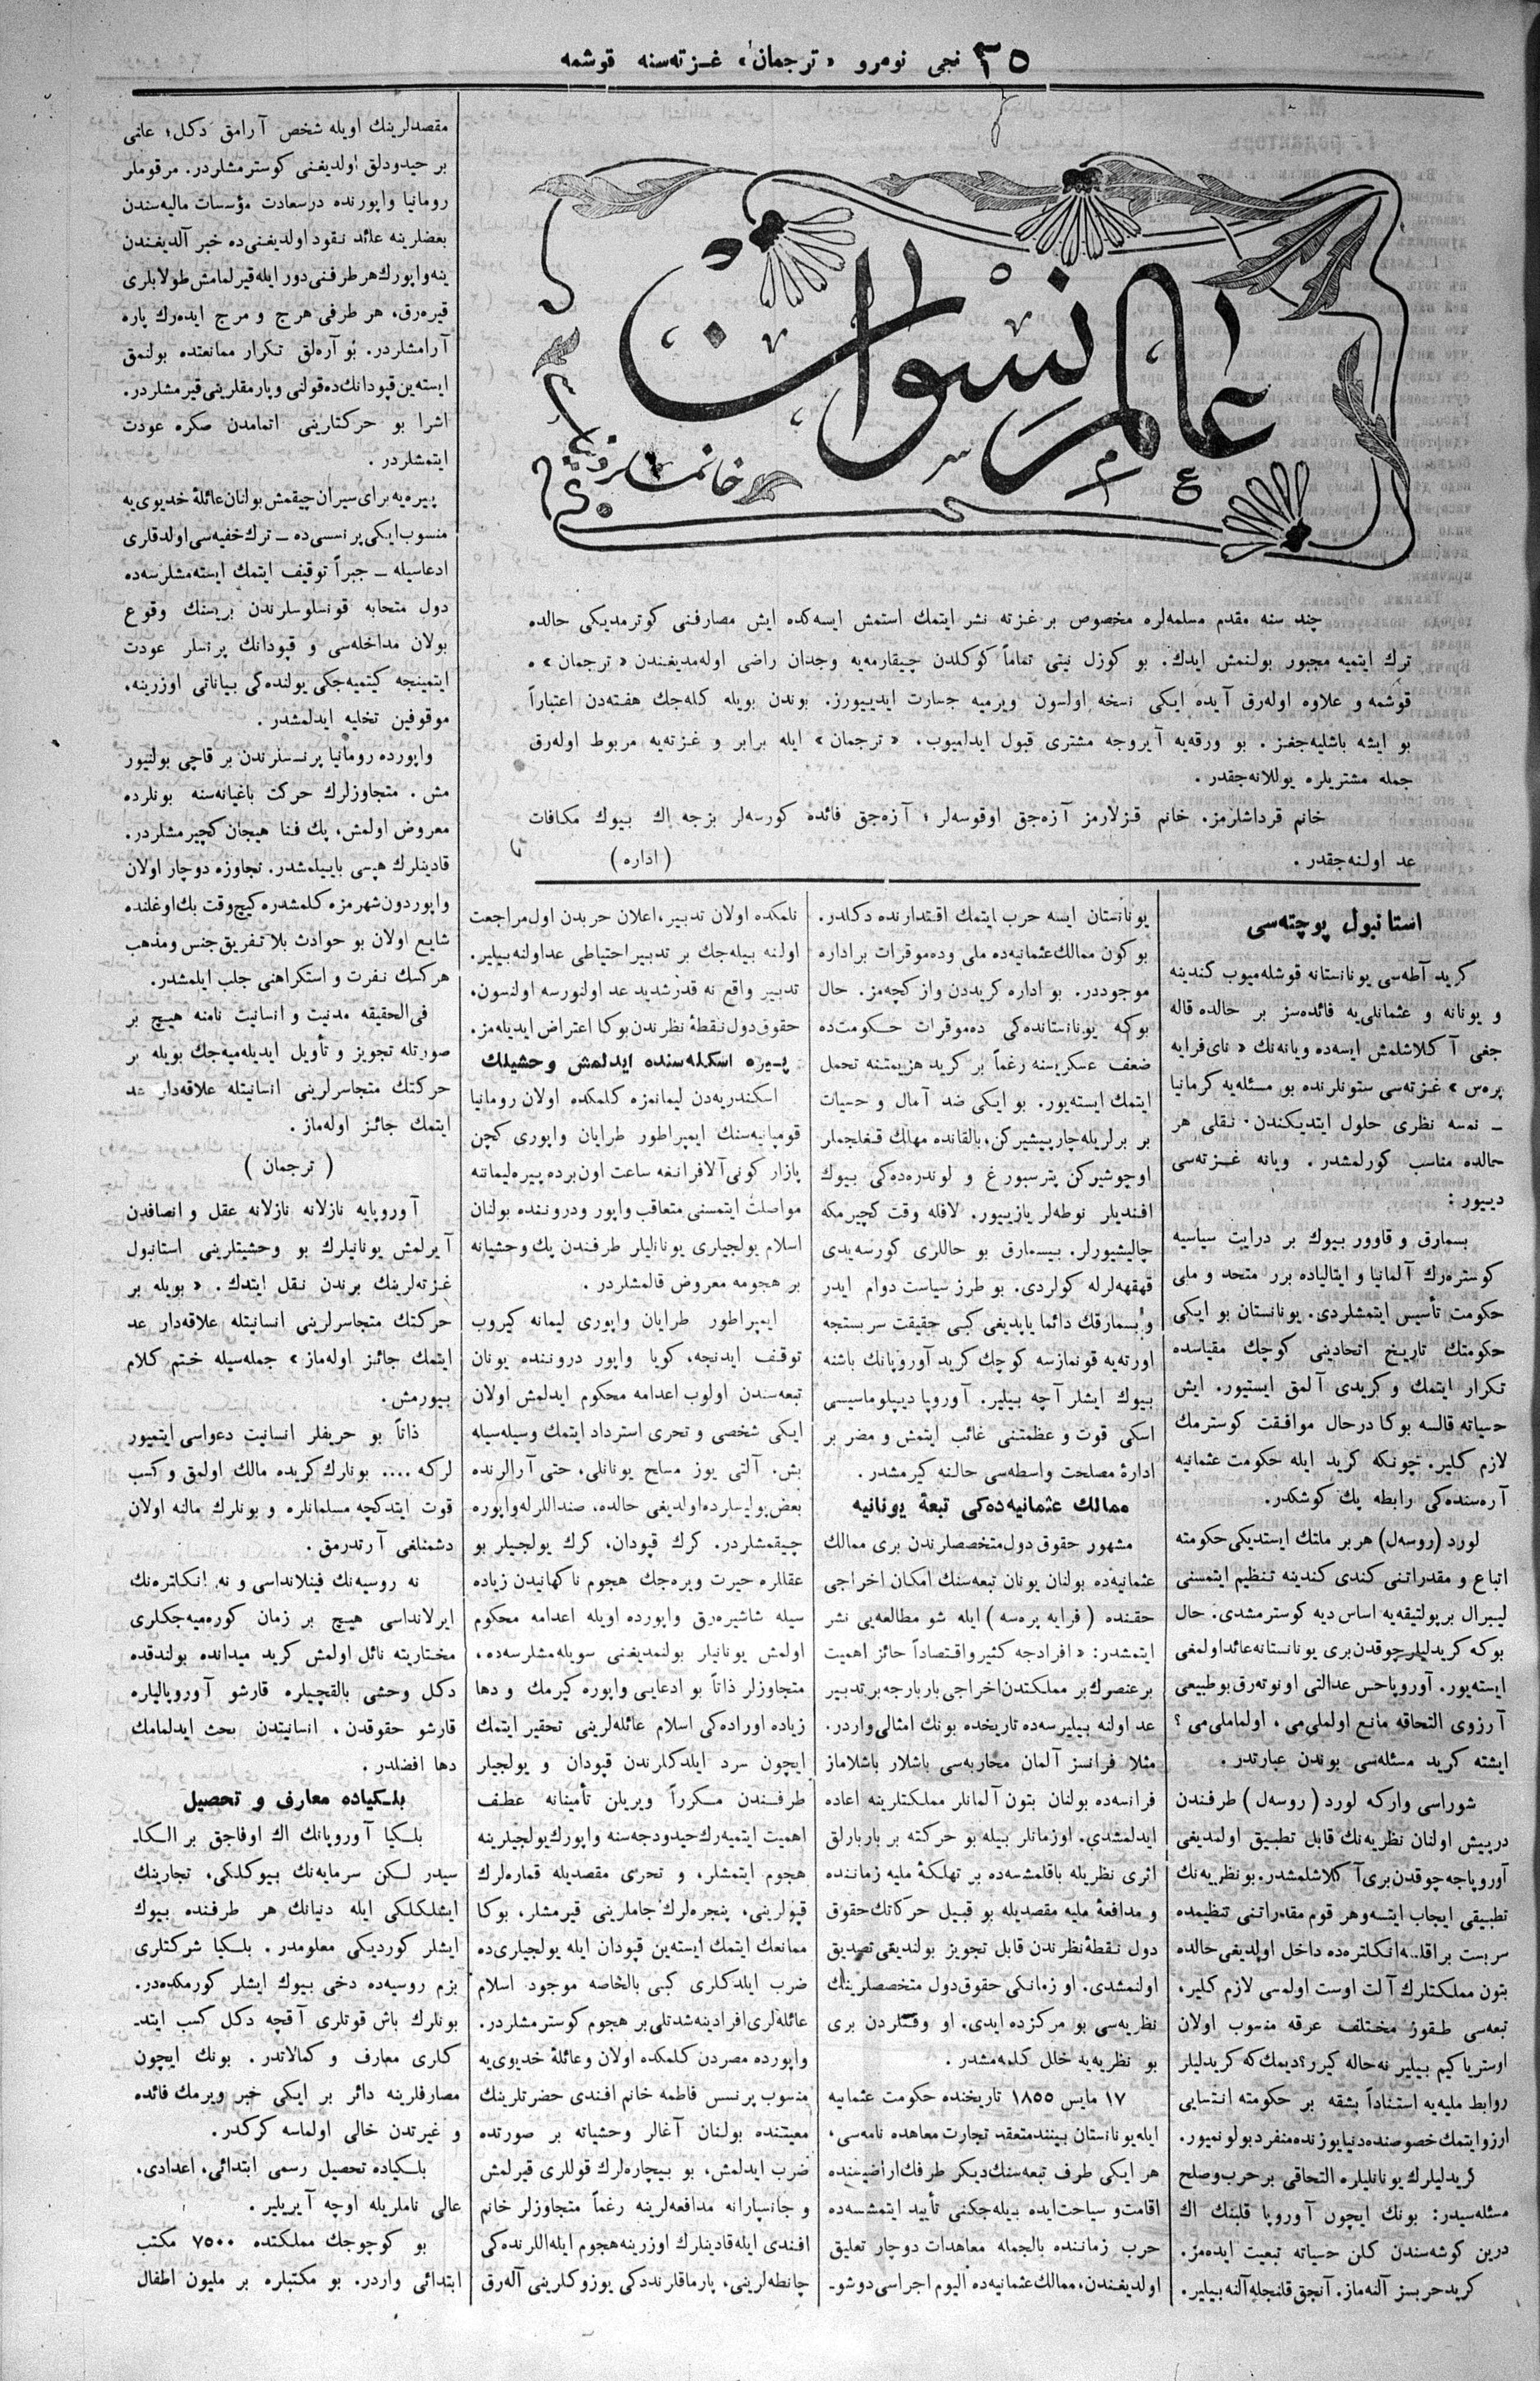 ٣٥ نجی نومرو « ترجمان » غزته‌سنه قوشمه
عالم نسوان
خانملر دنیاسی
چند سنه مقدم مسلمه‌لره مخصوص بر غزته نشر ایتمك استمش ایسه‌كده ایش مصارفنی كوترمدیكی حالده
ترك ایتمیه مجبور بولنمش ایدك. بو كوزل نیتی تماماً كوكلدن چیقارمه‌یه وجدان راضی اوله‌مدیغندن « ترجمان » ه
قوشمه و علاوه اوله‌رق آیده ایكی نسخه اولسون ویرمیه جسارت ایدییورز. بوندن بویله كله‌جك هفته‌دن اعتباراً
بو ایشه باشلیه‌جغز. بو ورقه‌یه آیروجه مشتری قبول ایدلمیوب، « ترجمان » ایله برابر و غزته‌یه مربوط اوله‌رق
جمله مشتریلره یوللانه‌جقدر.
خانم قرداشلرمز، خانم قزلارمز آزه‌جق اوقوسه‌لر؛ آزه‌جق فائده كورسه‌لر بزجه اك بیوك مكافات
عد اولنه‌جقدر. ( اداره )
استانبول پوچته‌سی
كرید آطه‌سی یونانستانه قوشله‌میوب كندینه
و یونانه و عثمانلی‌یه فائده‌سز بر حالده قاله
جغی آكلاشلمش ایسه‌ده ویانه‌نك « نای فرایه
پره‌س » غزته‌سی ستونلرنده بو مسئله‌یه كرمانیا
ـ نمسه نظری حلول ایتدیكندن نقلی هر
حالده مناسب كورلمشدر. ویانه غزته‌سی
دییور:
بسمارق و قاوور بیوك بر درایت سیاسیه
كوستره‌رك آلمانیا و ایتالیاده برر متحد و ملی
حكومت تأسیس ایتمشلردی. یونانستان بو ایكی
حكومتك تاریخ اتحادینی كوچك مقیاسده
تكرار ایتمك و كریدی آلمق ایستیور. ایش
حسیاته قالسه بوكا درحال موافقت كوسترمك
لازم كلیر. چونكه كرید ایله حكومت عثمانیه
آره‌سنده‌كی رابطه پك كوشكدر.
لورد (روسه‌ل) هر بر ملتك ایستدیكی حكومته
اتباع و مقدراتنی كندی كندینه تنظیم ایتمسنی
لیبرال بر پولتیقه‌یه اساس دیه كوسترمشدی. حال
بوكه كریدلیلر چوقدن بری یونانستانه عائد اولمغی
ایسته‌یور. آوروپا حس عدالتی اونوته‌رق بو طبیعی
آرزوی التحاقه مانع اولملی‌می، اولماملی‌می؟
ایشته كرید مسئله‌سی بوندن عبارتدر.
شوراسی واركه لورد ( روسه‌ل ) طرفندن
درپیش اولنان نظریه‌نك قابل تطبیق اولمدیغی
آوروپاجه چوقدن بری آكلاشلمشدر. بو نظریه‌نك
تطبیقی ایجاب ایتسه و هر قوم مقدراتنی تنظیمده
سربست براقلسه انكلتره‌ده داخل اولدیغی حالده
بتون مملكتلرك آلت اوست اولمسی لازم كلیر،
تبعه‌سی طقوز مختلف عرقه منسوب اولان
اوستریا كیم بیلیر نه حاله كیرر؟ دیمك كه كریدلیلر
روابط ملیه‌یه استناداً بشقه بر حكومته انتسابی
ارزو ایتمك خصوصنده دنیا یوزنده منفرد بولونمیور.
كریدلیلرك یونانلیلره التحاقی بر حرب و صلح
مسئله‌سیدر: بونك ایچون آوروپا قلبنك اك
درین كوشه‌سندن كلن حسیاته تبعیت ایده‌مز.
كرید حربسز آلنه‌ماز. آنجق قلنجله آلنه بیلیر.
یونانستان ایسه حرب ایتمك اقتدارنده دكلدر.
بو كون ممالك عثمانیه‌ده ملی و ده‌موقرات بر اداره
موجوددر. بو اداره كریددن واز كچه‌مز. حال
بوكه یونانستانده‌كی ده‌موقرات حكومت‌ده
ضعف عسكریسنه رغماً بر كرید هزیمتنه تحمل
ایتمك ایسته‌یور. بو ایكی ضد آمال و حسیات
بر برلریله چارپیشیركن، بالقانده مهلك قغلجملر
اوچوشیركن پترسبورغ و لوندره‌ده‌كی بیوك
افندیلر نوطه‌لر یازییور. لاقله وقت كچیرمكه
چالیشیورلر. بیسمارق بو حاللری كورسه‌یدی
قهقهه‌لرله كولردی. بو طرز سیاست دوام ایدر
و بسمارقك دائما یاپدیغی كبی حقیقت سربستجه
اورته‌یه قونمازسه كوچك كرید آوروپانك باشنه
بیوك ایشلر آچه بیلیر. آوروپا دیپلوماسیسی
اسكی قوت و عظمتنی غائب ایتمش و مضر بر
ادارهٔ مصلحت واسطه‌سی حالنه كیرمشدر.
ممالك عثمانیه‌ده‌كی تبعهٔ یونانیه
مشهور حقوق دول متخصصلرندن بری ممالك
عثمانیه‌ده بولنان یونان تبعه‌سنك امكان اخراجی
حقنده ( فرایه پره‌سه ) ایله شو مطالعه‌یی نشر
ایتمشدر: « افرادجه كثیر و اقتصاداً حائز اهمیت
بر عنصرك بر مملكتدن اخراجی باربارجه بر تدبیر
عد اولنه بیلیرسه‌ده تاریخده بونك امثالی واردر.
مثلا فرانسز آلمان محاربه‌سی باشلار باشلاماز
فرانسه‌ده بولنان بتون آلمانلر مملكتلرینه اعاده
ایدلمشدی. اوزمانلر بیله بو حركته بر باربارلق
اثری نظریله باقلمشسه‌ده بر تهلكهٔ ملیه زماننده
و مدافعهٔ ملیه مقصدیله بو قبیل حركاتك حقوق
دول نقطهٔ نظرندن قابل تجویز بولندیغی تصدیق
اولنمشدی. او زمانكی حقوق دول متخصصلرینك
نظریه‌سی بو مركزده ایدی. او وقتلردن بری
بو نظریه‌یه خلل كلمه‌مشدر.
١٧ مایس ١٨٥٥ تاریخنده حكومت عثمانیه
ایله یونانستان بیننده منعقد تجارت معاهده نامه‌سی،
هر ایكی طرف تبعه‌سنك دیكر طرفك اراضیسنده
اقامت و سیاحت ایده بیله‌جكنی تأیید ایتمشسه‌ده
حرب زماننده بالجمله معاهدات دوچار تعلیق
اولدیغندن، ممالك عثمانیه‌ده الیوم اجراسی دوشو-
نلمكده اولان تدبیر، اعلان حربدن اول مراجعت
اولنه بیله‌جك بر تدبیر احتیاطی عد اولنه بیلیر.
تدبیر واقع نه قدر شدید عد اولنورسه اولنسون،
حقوق دول نقطهٔ نظرندن بوكا اعتراض ایدیله‌مز.
پیره اسكله‌سنده ایدلمش وحشیلك
اسكندریه‌دن لیمانمزه كلمكده اولان رومانیا
قومپانیه‌سنك ایمپراطور طرایان واپوری كچن
پازار كونی آلافرانغه ساعت اون برده پیره لیماننه
مواصلت ایتمسنی متعاقب واپور درونده بولنان
اسلام یولجیلری یونانلیلر طرفندن پك وحشیانه
بر هجومه معروض قالمشلردر.
ایمپراطور طرایان واپوری لیمانه كیروب
توقف ایدنجه، كویا واپور دروننده یونان
تبعه‌سندن اولوب اعدامه محكوم ایدلمش اولان
ایكی شخصی و تحری استرداد ایتمك وسیله‌سیله
بش، آلتی یوز مسلح یونانلی، حتی آرالرنده
بعض بولیسلرده اولدیغی حالده، صنداللرله واپوره
چیقمشلردر. كرك قپودان، كرك یولجیلر بو
عقللره حیرت ویره‌جك هجوم ناكهانیدن زیاده
سیله شاشیره‌رق واپورده اویله اعدامه محكوم
اولمش یونانیلر بولنمدیغنی سویله‌مشلرسه‌ده،
متجاوزلر ذاتاً بو ادعایی واپوره كیرمك و دها
زیاده اوراده‌كی اسلام عائله‌لرینی تحقیر ایتمك
ایچون سرد ایلدكلرندن قپودان و یولجیلر
طرفندن مكرراً ویریلن تأمیناته عطف
اهمیت ایتمیه‌رك حیدودجه‌سنه واپورك یولجیلرینه
هجوم ایتمشلر، و تحری مقصدیله قماره‌لرك
قپولرینی، پنجره‌لرك جاملرینی قیرمشلر، بوكا
ممانعك ایتمك ایسته‌ین قپودان ایله یولجیلری‌ده
ضرب ایلدكلری كبی بالخاصه موجود اسلام
عائله‌لری افرادینه شدتلی بر هجوم كوسترمشلردر.
واپورده مصردن كلمكده اولان و عائلهٔ خدیوی‌یه
منسوب پرنسس فاطمه خانم افندی حضرتلرینك
معیتنده بولنان آغالر وحشیانه بر صورتده
ضرب ایدلمش، بو بیچاره‌لرك قوللری قیرلمش
و جانسپارانه مدافعه‌لرینه رغماً متجاوزلر خانم
افندی ایله قادینلرك اوزرینه هجوم ایله اللرنده‌كی
چانطه‌لرینی، پارماقلرنده‌كی یوزوكلرینی آله‌رق
مقصدلرینك اویله شخص آرامق دكل؛ عاٸی
بر حیدودلق اولدیغنی كوسترمشلردر. مرقوملر
رومانیا واپورنده درسعادت مؤسسات مالیه‌سندن
بعضلرینه عائد نقود اولدیغنی‌ده خبر آلدیغندن
ینه واپورك هر طرفنی دور ایله قیرلمامش طولابلری
قیره‌رق، هر طرفی هرج و مرج ایده‌رك پاره
آرامشلردر. بو آره‌لق تكرار ممانعتده بولنمق
ایسته‌ین قپودانك‌ده قولنی و پارمقلرینی قیرمشلردر.
اشرا بو حركتارینی اتمامدن صكره عودت
ایتمشلردر.
پیره‌یه برای سیران چیقمش بولنان عائلهٔ خدیوی‌یه
منسوب ایكی پرنسسی‌ده ـ ترك خفیه‌سی اولدقلری
ادعاسیله ـ جبراً توقیف ایتمك ایسته‌مشلرسه‌ده
دول متحابه قونسلوسلرندن بریسنك وقوع
بولان مداخله‌سی و قپودانك پرنسلر عودت
ایتمینجه كیتمیه‌جكی یولنده‌كی بیاناتی اوزرینه،
موقوفین تخلیه ایدلمشدر.
واپورده رومانیا پرنسلرندن بر قاچی بولنیور
مش. متجاوزلرك حركت باغیانه‌سنه بونلرده
معروض اولمش، پك فنا هیجان كچیرمشلردر.
قادینلرك هپسی باییلمشدر. تجاوزه دوچار اولان
واپور دون شهرمزه كلمشدره كیچ وقت بك اوغلنده
شایع اولان بو حوادث بلا تفریق جنس و مذهب
هركسك نفرت و استكراهنی جلب ایلمشدر.
فی الحقیقه مدنیت و انسانیت نامنه هیچ بر
صورتله تجویز و تأویل ایدیله‌میه‌جك بویله بر
حركتك متجاسرلرینی انسانیتله علاقه‌دار عد
ایتمك جائز اوله‌ماز.
( ترجمان )
آوروپایه نازلانه نازلانه عقل و انصافدن
آیرلمش یونانیلرك بو وحشیتلرینی استانبول
غزته‌لرینك برندن نقل ایتدك. « بویله بر
حركتك متجاسرلرینی انسانیتله علاقه‌دار عد
ایتمك جائز اوله‌ماز » جمله‌سیله ختم كلام
بیورمش.
ذاتاً بو حریفلر انسانیت دعواسی ایتمیور
لركه .... بونارك كریده مالك اولمق و كسب
قوت ایتدكچه مسلمانلره و بونلرك مالنه اولان
دشمنلغی آرتدرمق.
نه روسیه‌نك فینلانداسی و نه انكلتره‌نك
ایرلانداسی هیچ بر زمان كوره‌میه‌جكلری
مختاریته نائل اولمش كرید میدانده بولندقده
دكل وحشی بالقجیلره قارشو آوروپالیلره
قارشو حقوقدن، انسانیتدن بحث ایدلمامك
دها افضلدر.
بلـكیاده معارف و تحصیل
بلـكیا آوروپانك اك اوفاجق بر الـكا-
سیدر لـكن سرمایه‌نك بیوكلكی، تجارینك
ایشلكلكی ایله دنیانك هر طرفنده بیوك
ایشلر كوردیكی معلومدر. بلـكیا شركتلری
بزم روسیه‌ده دخی بیوك ایشلر كورمكده‌در.
بونلرك باش قوتلری آقچه دكل كسب ایتد-
كلری معارف و كمالاتدر. بونك ایچون
مصارفلرینه دائر بر ایكی خبر ویرمك فائده
و غیرتدن خالی اولماسه كركدر.
بلـكیاده تحصیل رسمی ابتدائی، اعدادی،
عالی ناملریله اوچه آیریلیر.
بو كوچوجك مملكتده ٧٥٠٠ مكتب
ابتدائی واردر. بو مكتبلره بر ملیون اطفال